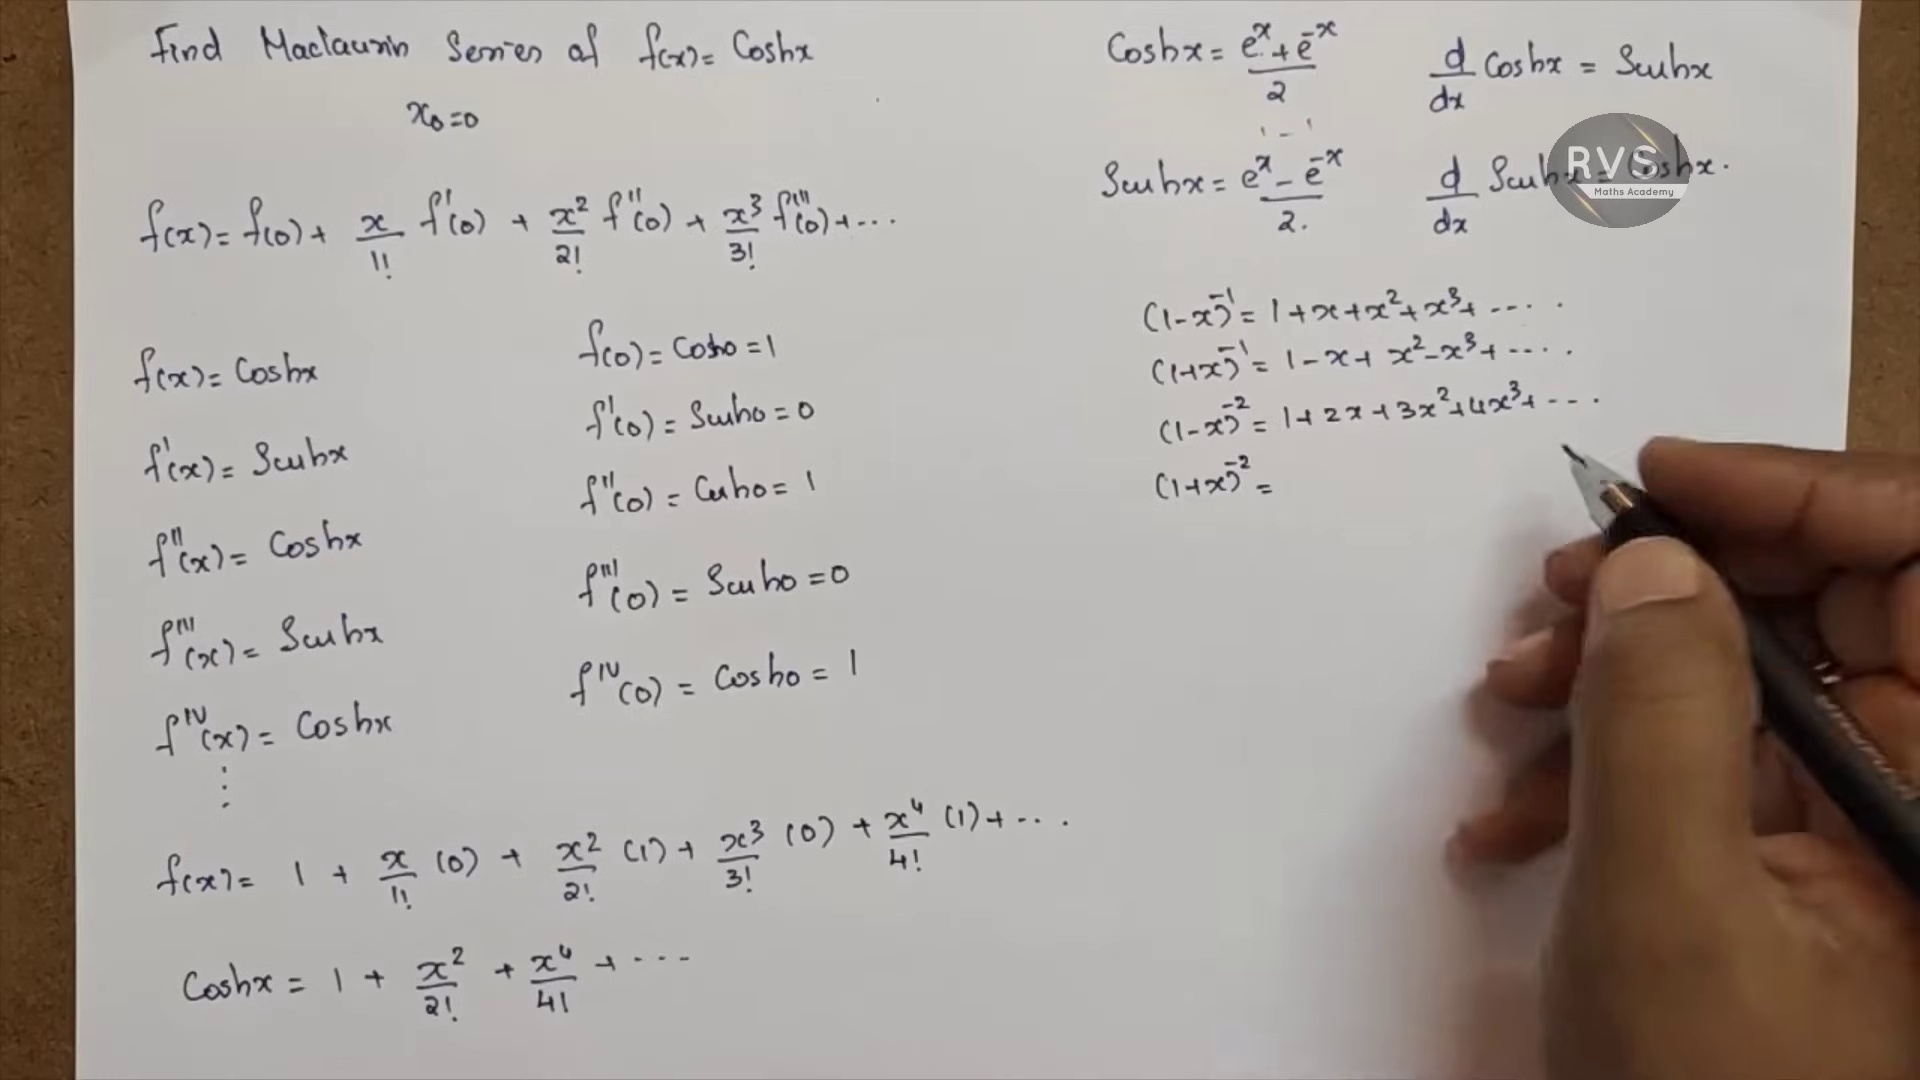 Find Maclaurin Series of f(x) = Coshx
x₀=0
f(x) = f(0) + x/1! f'(0) + x²/2! f''(0) + x³/3! f'''(0) + ...
f(x) = Coshx
f(0) = Cosh0 = 1
f'(x) = Sinhx
f'(0) = Sinh0 = 0
f''(x) = Coshx
f''(0) = Cosh0 = 1
f'''(x) = Sinhx
f'''(0) = Sinh0 = 0
f^IV(x) = Coshx
f^IV(0) = Cosh0 = 1
⋮
f(x) = 1 + x/1! (0) + x²/2! (1) + x³/3! (0) + x⁴/4! (1) + ...
Coshx = 1 + x²/2! + x⁴/4! + ...
Coshx = (eˣ + e⁻ˣ)/2
d/dx Coshx = Sinhx
Sinhx = (eˣ - e⁻ˣ)/2.
d/dx Sinhx = Coshx.
RVS
Maths Academy
(1-x)⁻¹ = 1+x+x²+x³+ .....
(1+x)⁻¹ = 1-x+x²-x³+ .....
(1-x)⁻² = 1+2x+3x²+4x³+ ....
(1+x)⁻² =